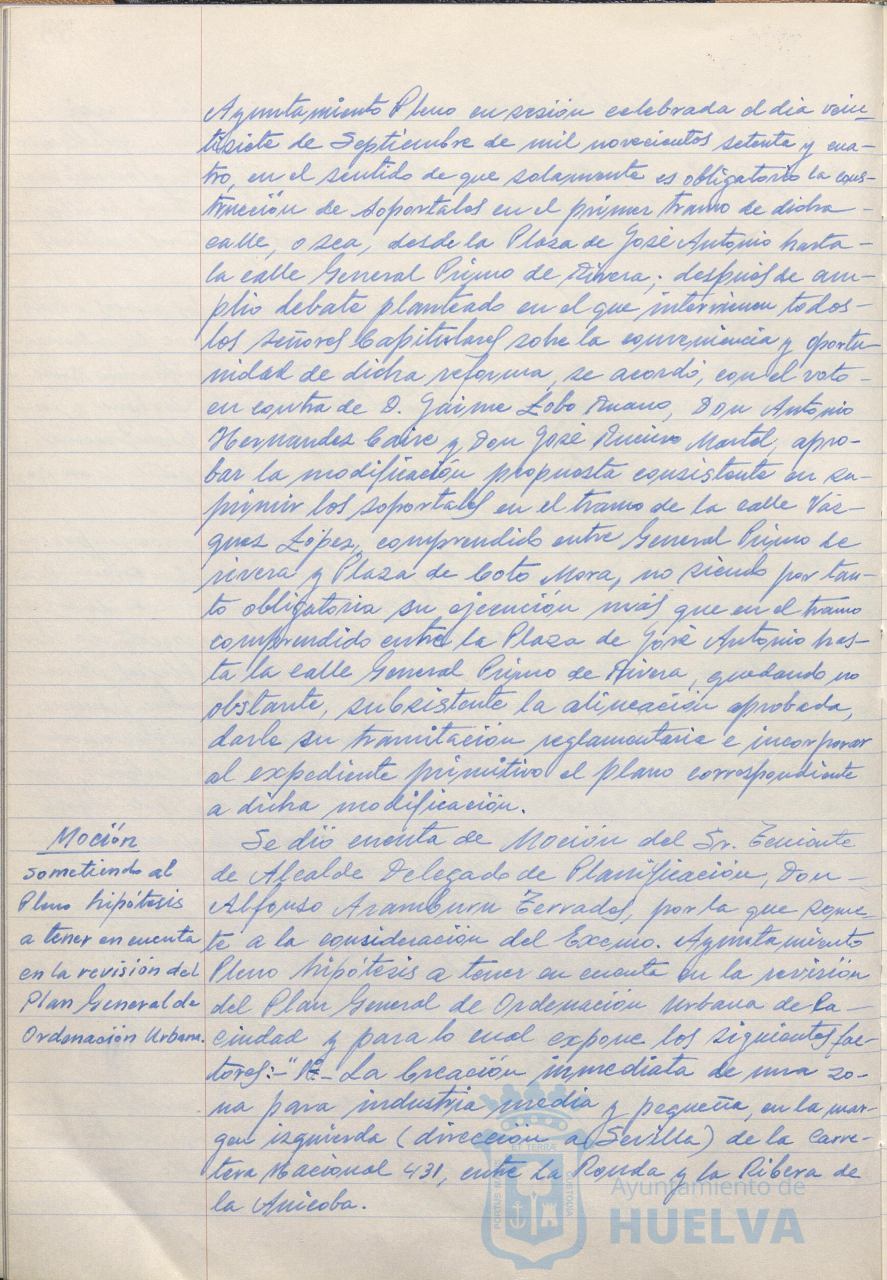 Ayuntamiento Pleno en sesión celebrada el día vein_
tisiete de Septiembre de mil novecientos setenta y cua-
tro, en el sentido de que solamente es obligatorio la cons-
trucción de soportales en el primer tramo de dicha -
calle, o sea, desde la Plaza de José Antonio hasta -
la calle General Primo de Rivera; después de am-
plio debate planteado en el que intervienen todos -
los señores Capitulares sobre la conveniencia y oportu-
nidad de dicha reforma, se acordó, con el voto -
en contra de D. Jaime Lobo Ruano, Don Antonio
Hernandez Caire y Don José Martel, apro-
bar la modificación propuesta consistente en su-
primir los soportales en el tramo de la calle Váz-
quez López, comprendido entre General Primo de
rivera y Plaza de Coto Mora, no siendo por tan-
to obligatoria su ejecución más que en el tramo
comprendido entre la Plaza de José Antonio has-
ta la calle General Primo de Rivera, quedando no
obstante, subsistente la alineación aprobada,
darle su tramitación reglamentaria e incorporar
al expediente primitivo el plano correspondiente
a dicha modificación.
Moción
sometiendo al
Pleno hipótesis
a tener en cuenta
en la revisión del
Plan General de
Ordenación Urbana.
Se dió cuenta de Moción del Sr. Teniente
de Alcalde Delegado de Planificación, Don -
Alfonso Aramburu Terrades, por la que some-
te a la consideración del Excmo. Ayuntamiento
Pleno hipótesis a tener en cuenta en la revisión
del Plan General de Ordenación Urbana de la -
ciudad y para lo cual expone los siguientes fac-
tores:-"1º- La Creación inmediata de una zo-
na para industria media y pequeña, en la mar-
gen izquierda (dirección a Sevilla) de la Carre-
tera Nacional 431, entre La Ronda y la Ribera de
la Anicoba.
Ayuntamiento de
HUELVA
PORTUS MARIS
ET TERRÆ
CUSTODIA